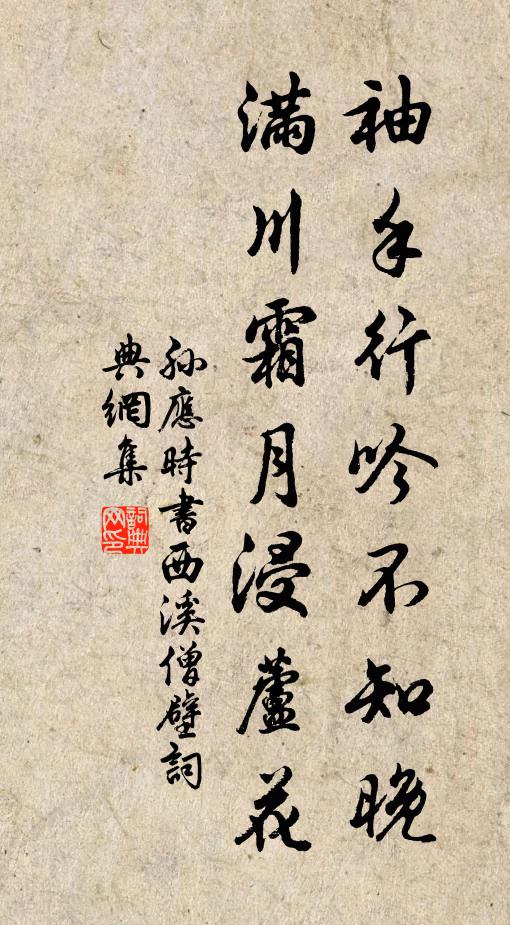 袖手行吟不知晚
滿川霜月浸蘆花
孫應時書西溪僧壁詞
典網集
詞典網印